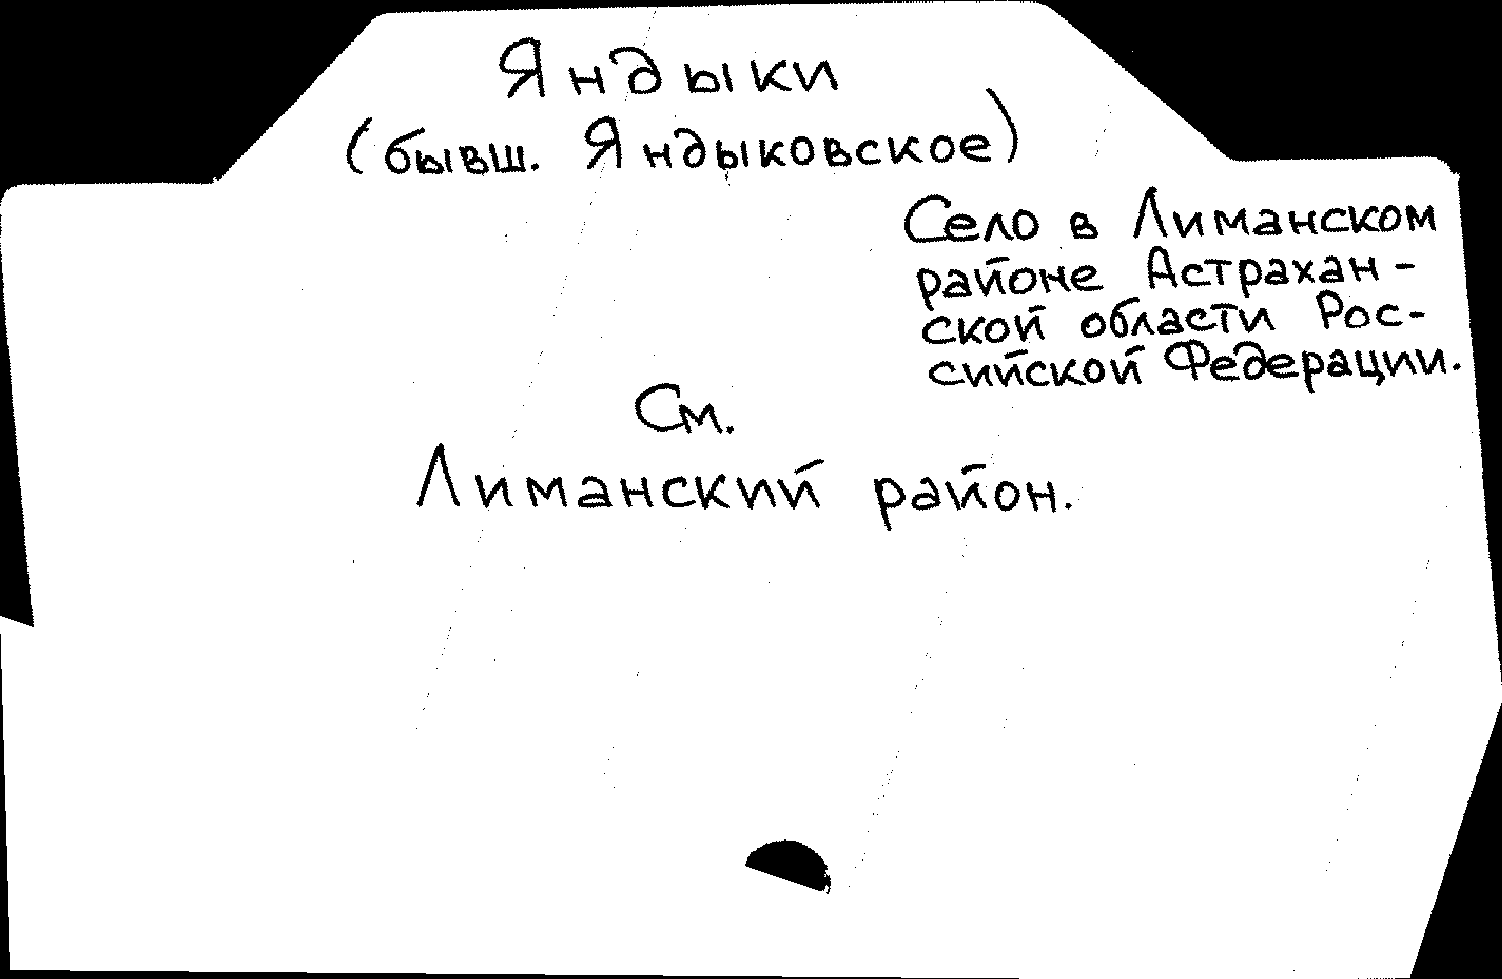 Яндыки
(бывш. Яндыковское)
Село в Лиманском
районе Астрахан-
ской области Рос-
сийской Федерации.
См.
Лиманский район.